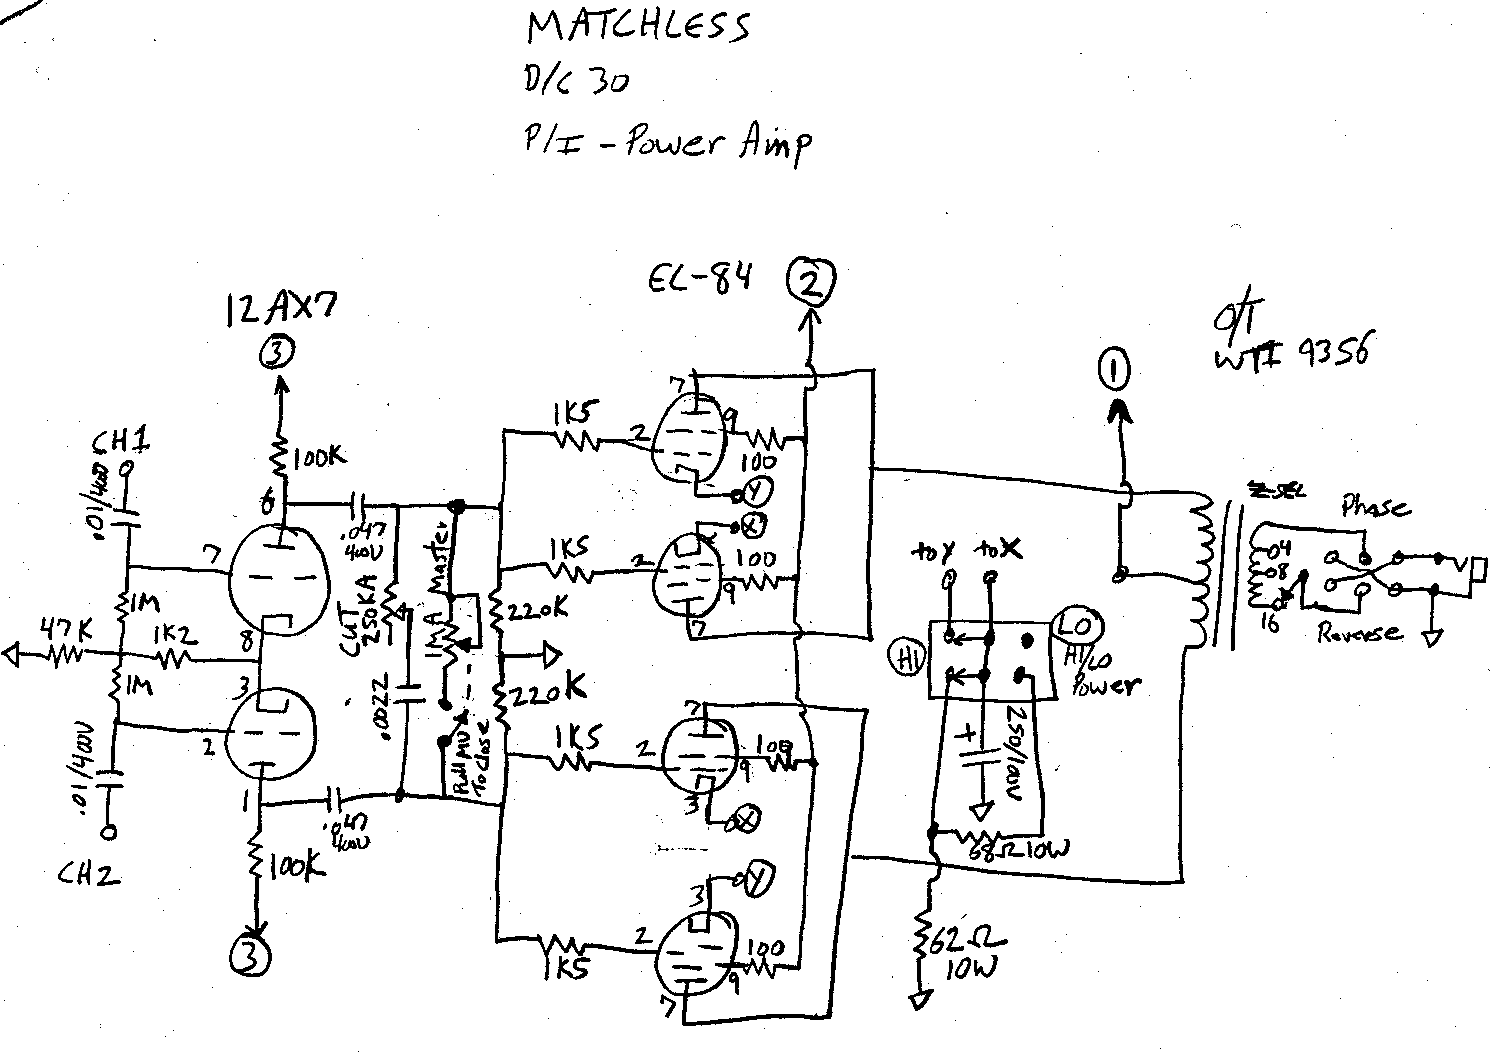 MATCHLESS
D/C 30
P/I - Power Amp
EL-84
2
12AX7
3
O/T
WTI 9356
1
CH1
.01/400V
100K
6
.047
400V
7
1M
47K
1K2
8
3
1M
2
.01/400V
CH2
1
.047
400V
100K
3
CUT
250KA
.0022
Master
1MA
Pull MV
To close
220K
220K
1K5
2
7
9
100
Y
X
1K5
2
9
100
7
1K5
2
7
9
100
3
X
Y
3
1K5
2
9
100
7
to Y
to X
HI
LO
HI/LO
Power
+
250/100V
68Ω 10W
62Ω
10W
Z-SEL
04
08
16
Phase
Reverse